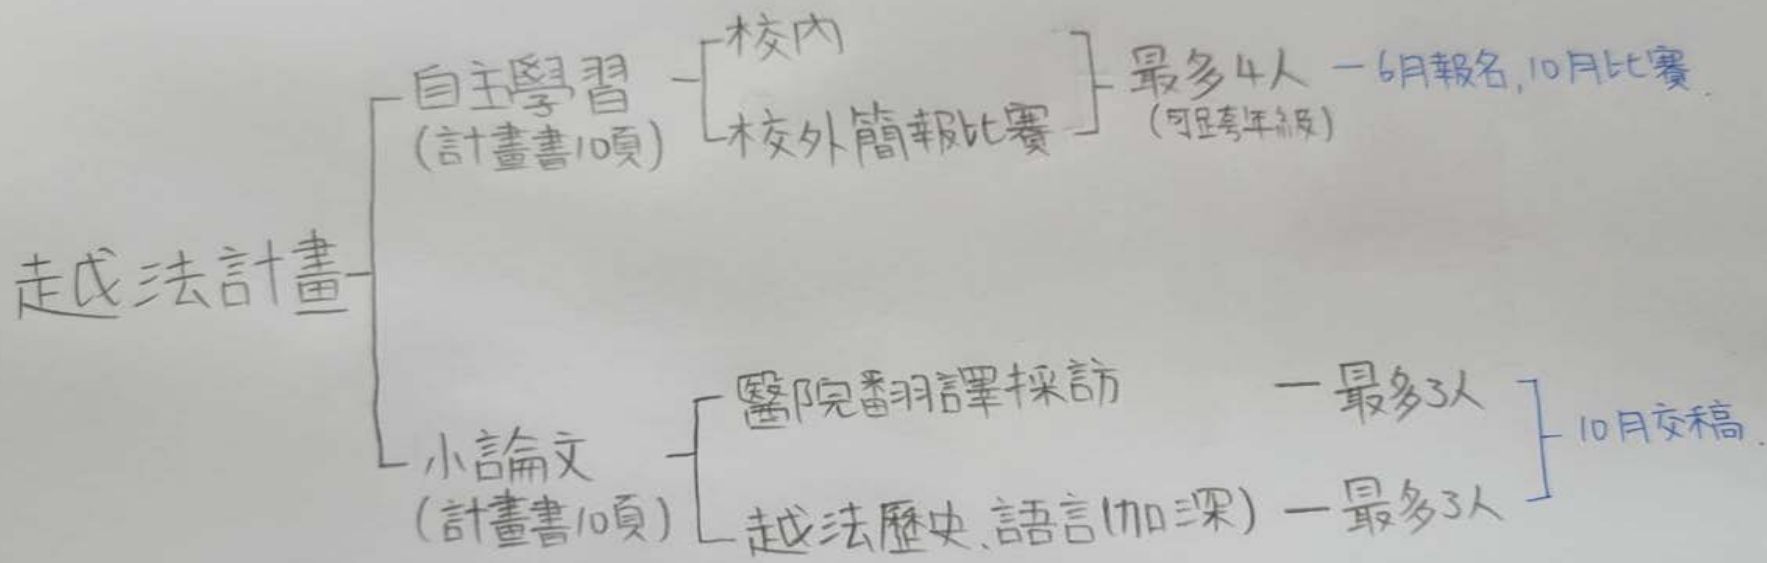 越法計畫
自主學習
(計畫書10頁)
校內
校外簡報比賽
最多4人
(可跨年級)
6月報名,10月比賽.
小論文
(計畫書10頁)
醫院翻譯採訪
最多3人
越法歷史、語言(加深)
最多3人
10月交稿.